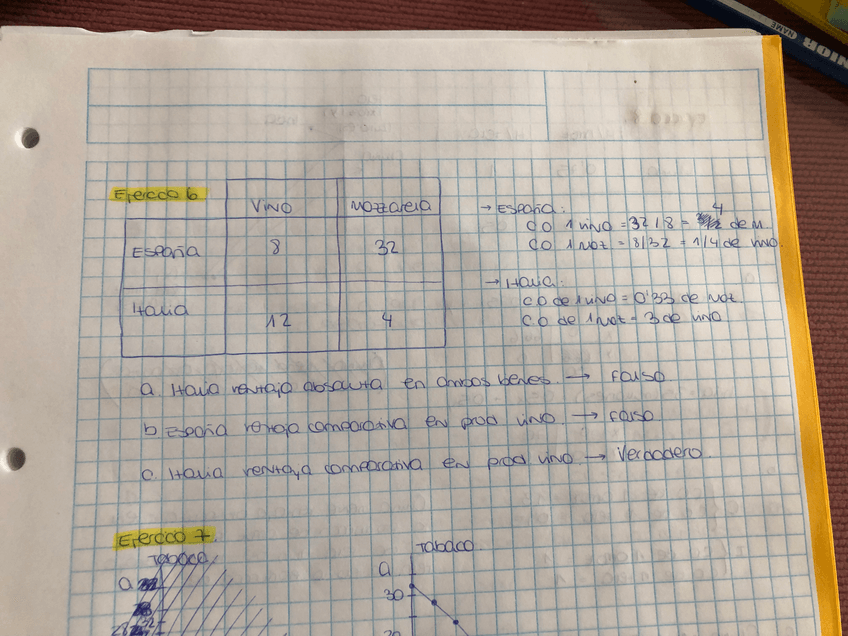 JUNIOR
NAME
Ejercicio 6
VINO
Mozzarella
España
8
32
Italia
12
4
→ España:
CO 1 vino = 32/8 = 4 de M.
CO 1 Moz = 8/32 = 1/4 de vino.
→ Italia:
CO de 1 vino = 0'33 de Moz.
CO de 1 Moz = 3 de vino
a. Italia ventaja absoluta en ambos bienes. → Falso
b Españа ventaja comparativa en prod vino. → Falso
c. Italia ventaja comparativa en prod vino → Verdadero.
Ejercicio 7.
Tabaco
a
28
32
Tabaco.
a
30
20